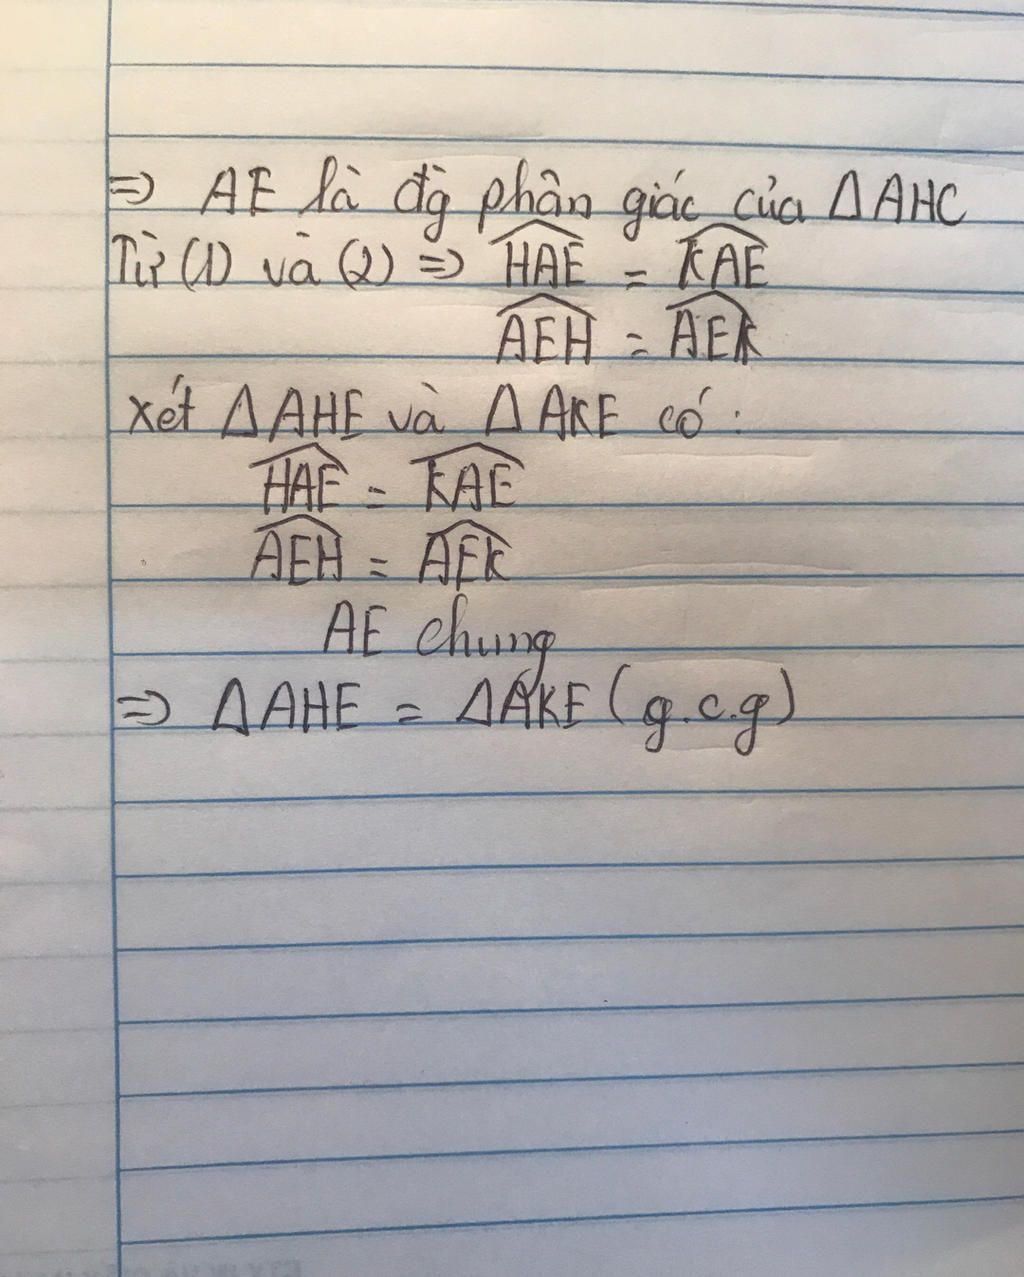 => AE là đg̀ phân giác của ΔAHC
Từ (1) và (2) => \widehat{HAE} = \widehat{KAE}
\widehat{AEH} = \widehat{AEK}
xét ΔAHE và ΔAKE có :
\widehat{HAE} = \widehat{KAE}
\widehat{AEH} = \widehat{AEK}
AE chung
=> ΔAHE = ΔAKE (g.c.g)